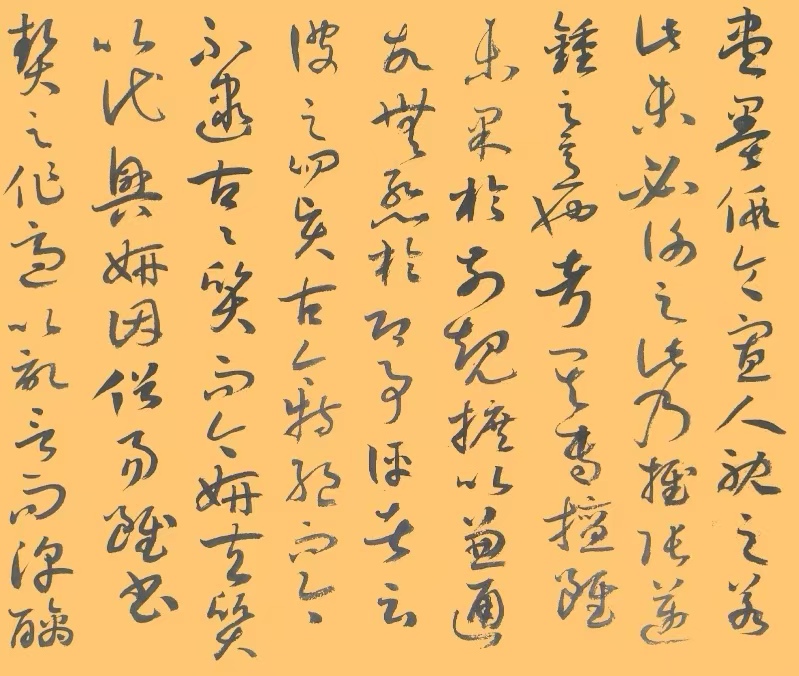 盡墨假令寡人耽之若
此未必謝之此乃推張邁
鍾之意也考其專擅雖
未果於前規摭以兼通
故無慙於即事評者云
彼之四賢古今特絕而今
不逮古古質而今妍夫質
以代興妍因俗易雖書
契之作適以記言而淳醨